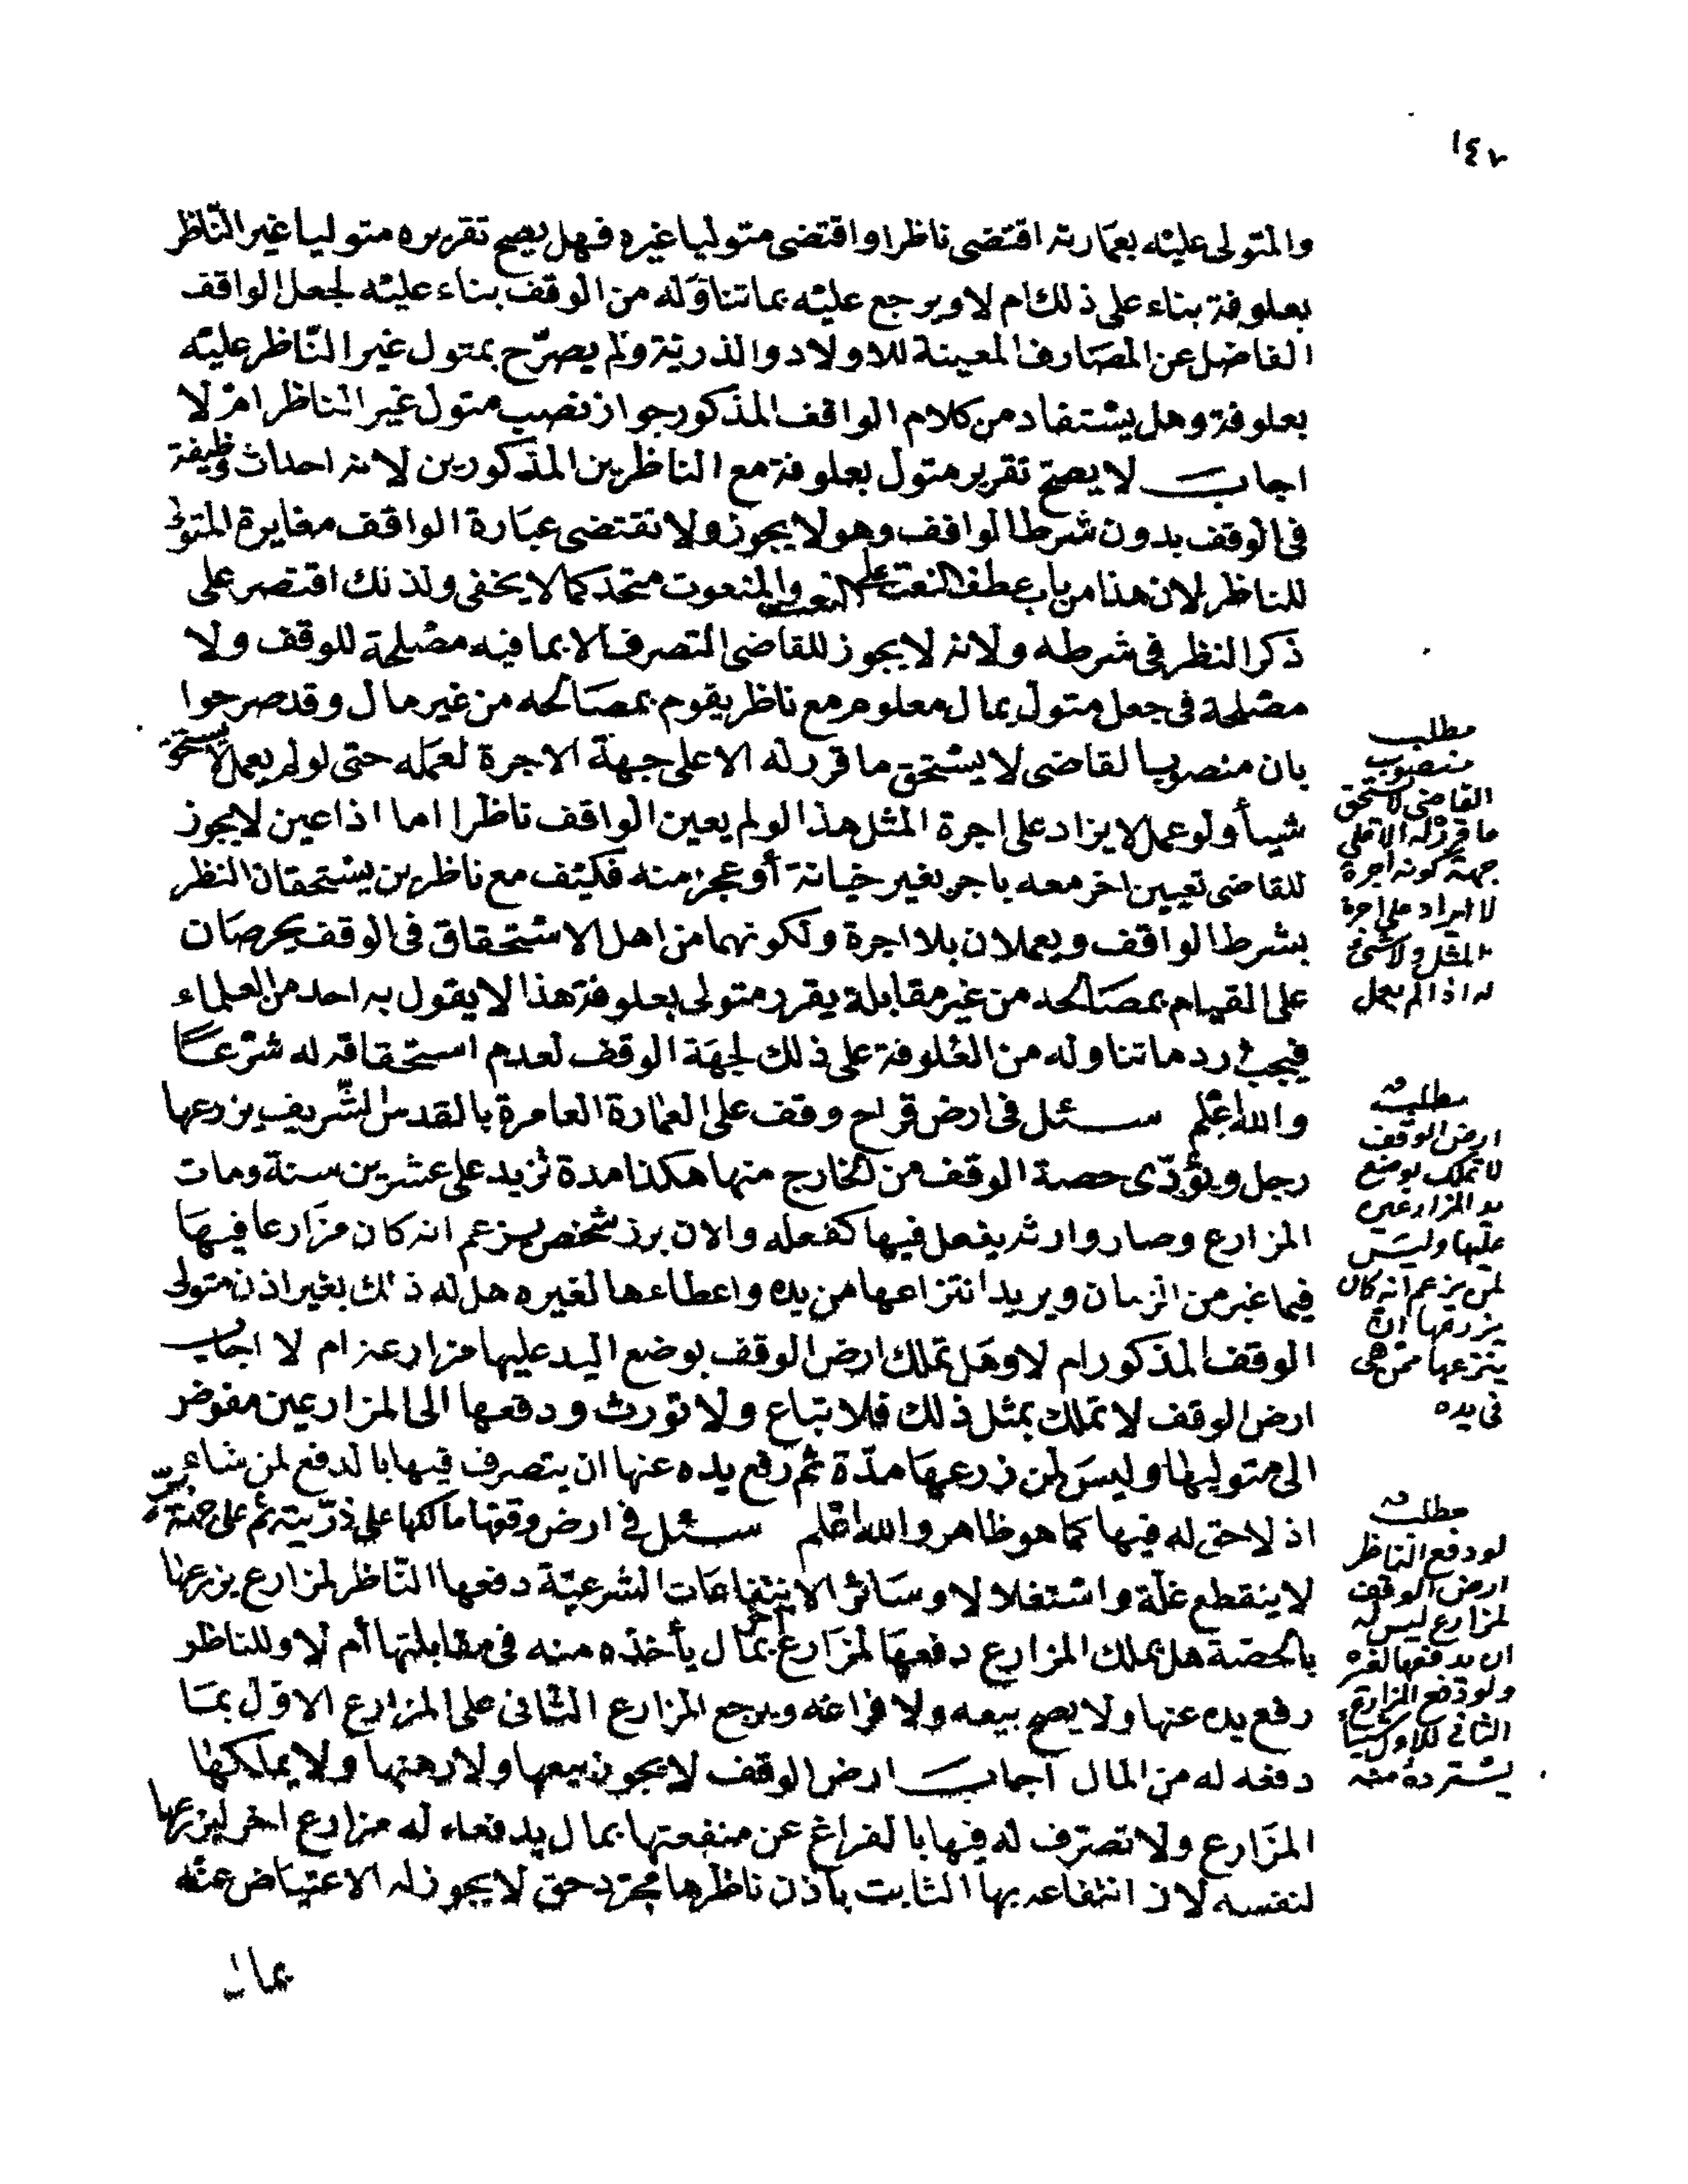 ١٤٧
والمتولى عليه بعمارته اقتضى ناظرا واقتضى متوليا غيره فهل يصح تقريره متوليا غير الناظر
بعلوفة بناء على ذلك ام لا ويرجع عليه بما تناوله من الوقف بناء عليه لجعل الواقف
الفاضل عن المصارف المعينة للاولاد والذرية ولم يصرّح بمتول غير النّاظر عليه
بعلوفة وهل يستفاد من كلام الواقف المذكور جواز نصب متول غير الناظر ام لا
اجاب لا يصح تقرير متول بعلوفة مع الناظرين المذكورين لانه احداث وظيفة
فى الوقف بدون شرط الواقف وهو لا يجوز ولا تقتضى عبارة الواقف مغايرة المتولى
للناظر لان هذا من باب عطف النعت على النعت والمنعوت متحد كما لا يخفى ولذلك اقتصر على
ذكر النظر فى شرطه ولانه لا يجوز للقاضى التصرف الا بما فيه مصلحة للوقف ولا
مصلحة فى جعل متول بمال معلوم مع ناظر يقوم بمصالحه من غير مال وقد صرحوا
بان منصوب القاضى لا يستحق ما قرر له الا على جهة الاجرة لعمله حتى لو لم يعمل لا يستحق
شيأ ولو عمل لا يزاد على اجرة المثل هذا لو لم يعين الواقف ناظرا اما اذا عين لا يجوز
للقاضى تعيين اخر معه باجر بغير خيانة أو عجز منه فكيف مع ناظرين يستحقان النظر
بشرط الواقف ويعملان بلا اجرة ولكونهما من اهل الاستحقاق فى الوقف يحرصان
على القيام بمصالحه من غير مقابلة يقرر متولى بعلوفة هذا لا يقول به احد من العلماء
فيجب رد ما تناوله من العلوفة على ذلك لجهة الوقف لعدم استحقاقه له شرعا
والله اعلم سئل فى ارض قراح وقف على العمارة العامرة بالقدس الشّريف يزرعها
رجل ويؤدّى حصة الوقف من الخارج منها هكذا مدة تزيد على عشرين سنة ومات
المزارع وصار وارثه يفعل فيها كفعله والان برز شخص يزعم انه كان مزارعا فيها
فيما غبر من الزمان ويريد انتزاعها من يده واعطاءها لغيره هل له ذلك بغير اذن متولى
الوقف المذكور ام لا وهل تملك ارض الوقف بوضع اليد عليها مزارعة ام لا اجاب
ارض الوقف لا تملك بمثل ذلك فلا تباع ولا تورث ودفعها الى المزارعين مفوض
الى متوليها وليس لمن زرعها مدّة ثم رفع يده عنها ان يتصرف فيها بالدفع لمن شاء
اذ لا حق له فيها كما هو ظاهر والله اعلم سئل فى ارض وقفها مالكها على ذرّيته ثم على جهة برّ
لا ينقطع غلّة واستغلالا وسائر الانتفاعات الشرعيّة دفعها النّاظر لمزارع يزرعها
بالحصة هل يملك المزارع دفعها لمزارع اخر بمال يأخذه منه فى مقابلتها أم لا وللناظر
رفع يده عنها ولا يصح بيعه ولا فراغه ويرجع المزارع الثانى على المزارع الاول بما
دفعه له من المال اجاب ارض الوقف لا يجوز بيعها ولا رهنها ولا يملكها
المزارع ولا تصرّف له فيها بالفراغ عن منفعتها بمال يدفعه له مزارع اخر ليزرعها
لنفسه لان انتفاعه بها الثابت باذن ناظرها مجرّد حق لا يجوز له الاعتياض عنه
بمال
مطلب
منصوب
القاضى لا يستحق
ما قرر له الا على
جهة كونه اجرة
لا يزاد على اجرة
المثل ولا شئ
له اذا لم يعمل
مطلب
ارض الوقف
لا تملك بوضع
يد المزارعين
عليها وليس
لمن يزعم انه كان
يزرعها ان
ينتزعها ممن هى
فى يده
مطلب
لو دفع الناظر
ارض الوقف
لمزارع ليس له
ان يدفعها لغيره
ولو دفع المزارع
الثانى للاول شيأ
يسترده منه